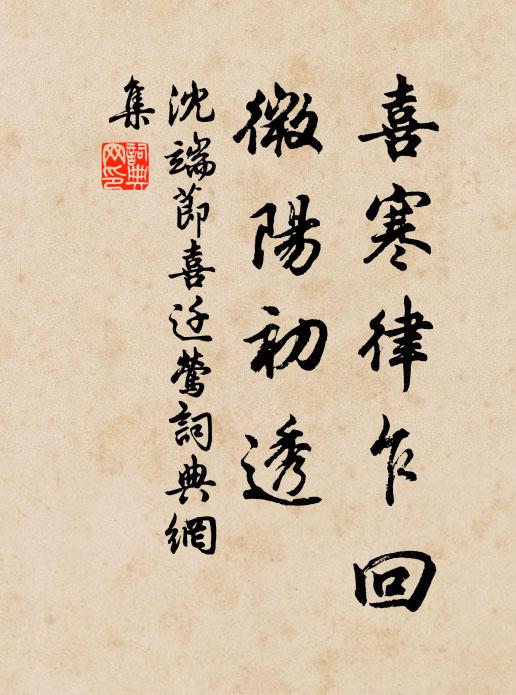 喜寒律乍回
微陽初透
沈端節喜迁鶯詞典網
集
詞典网印